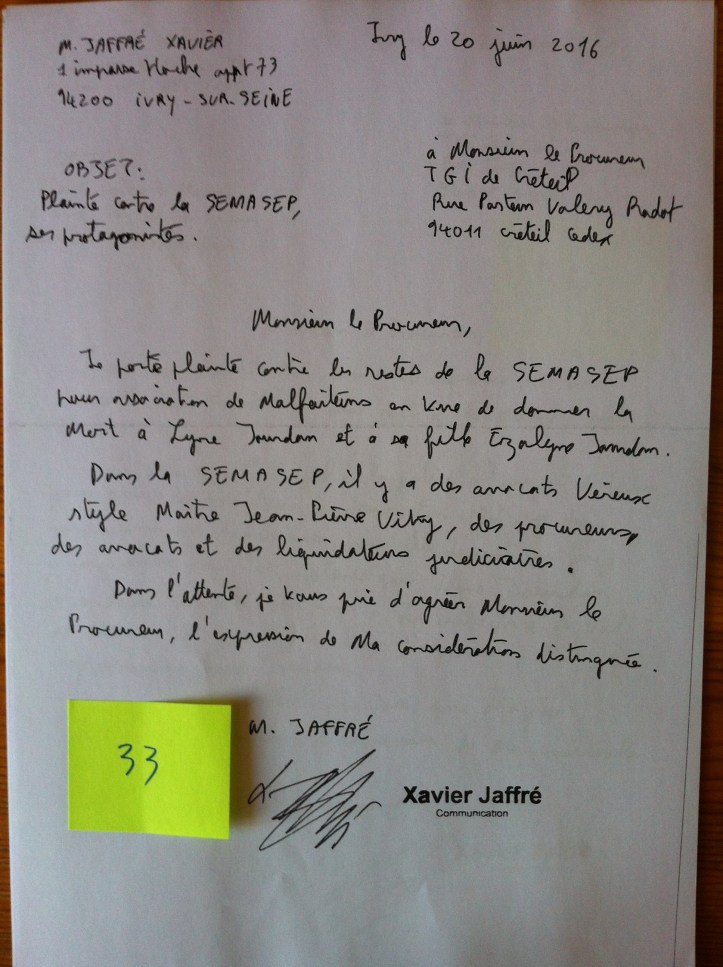 M. JAFFRÉ XAVIER
1 impasse Hoche appt 73
94200 IVRY-SUR-SEINE
Ivry le 20 juin 2016
à Monsieur le Procureur
TGI de Créteil
Rue Pasteur Valery Radot
94011 Créteil Cedex
OBJET:
Plainte contre la SEMASEP,
ses protagonistes.
Monsieur le Procureur,
Je porte plainte contre les restes de la SEMASEP
pour association de Malfaiteurs en vue de donner la
Mort à Lyne Jourdan et à sa fille Jourdan.
Dans la SEMASEP, il y a des avocats Véreux
style Maître Jean-Pierre Vitry, des procureurs,
des avocats et des liquidateurs judiciaires.
Dans l'attente, je vous prie d'agréer Monsieur le
Procureur, l'expression de Ma considération distinguée.
M. JAFFRÉ
33
Xavier Jaffré
Communication